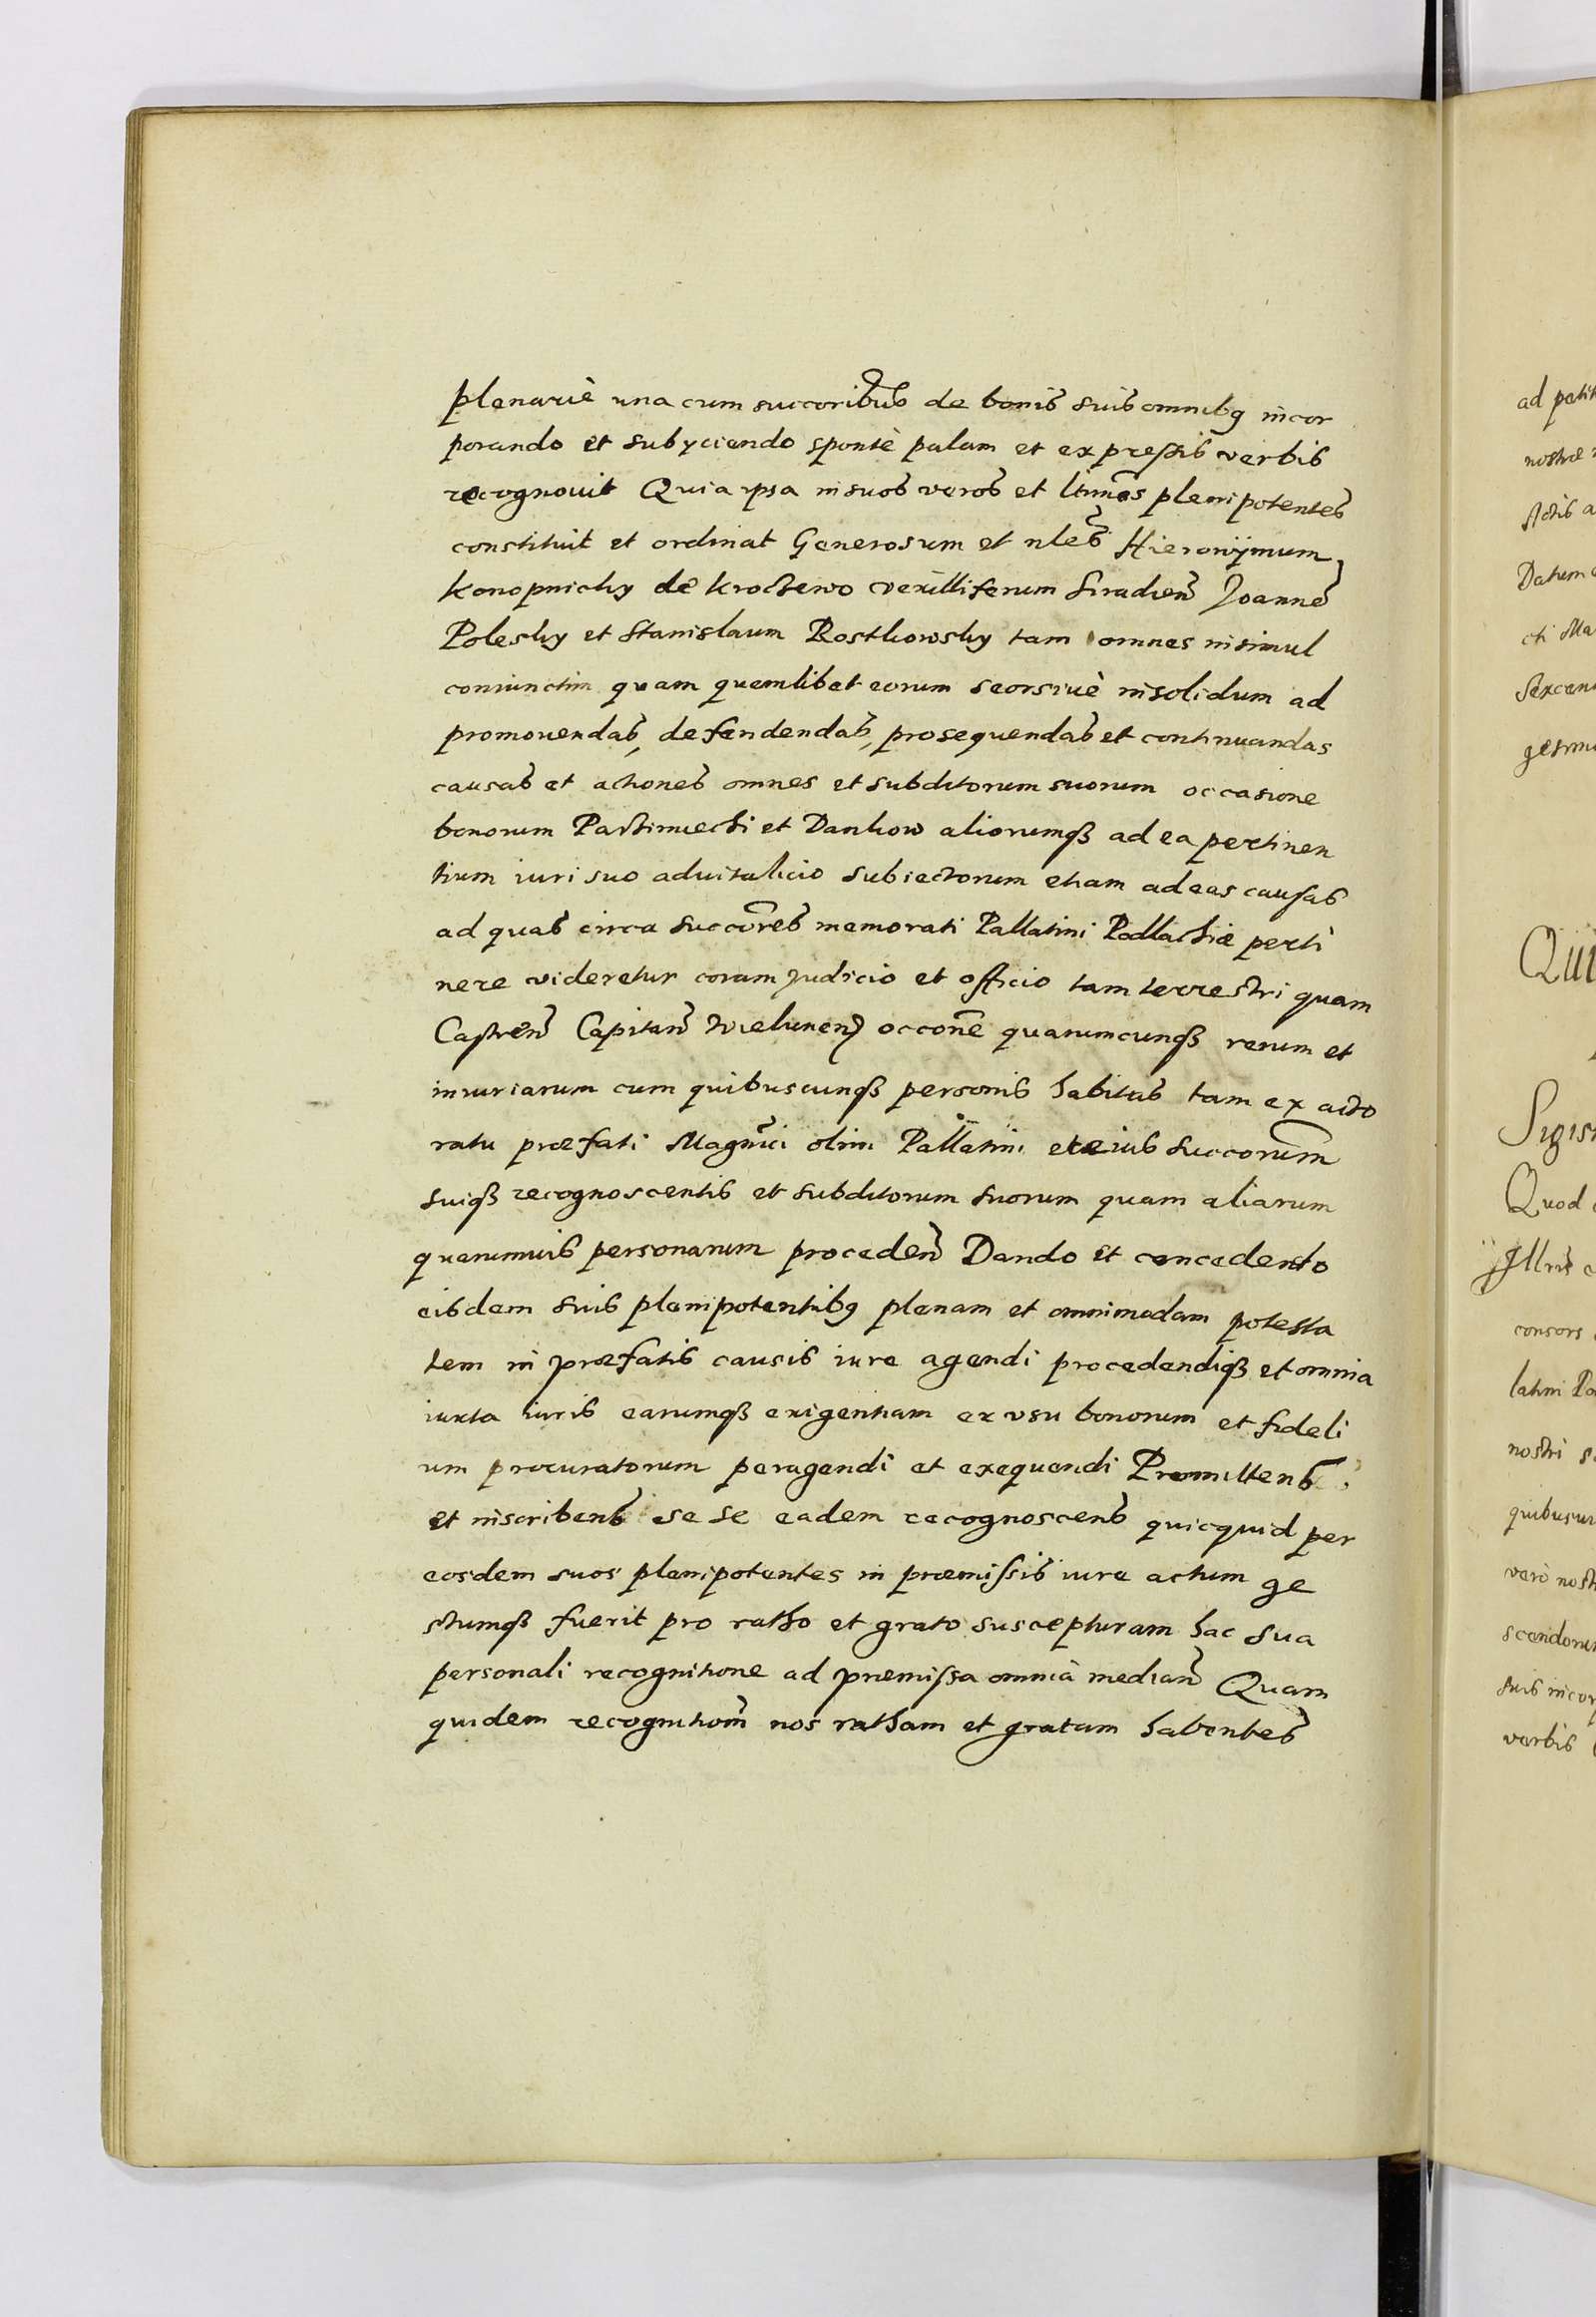 plenariè una cum succoribus de bonis suis omnibq incor
porando et subyciendo spontè palam et expressis verbis
recognouit Quia ipsa in suos veros et ltimos plenipotentes
constituit et ordinat Generosum et nles Hieronÿmum
Konopnicky de Krochewo vexilliferum Siradien Joanne
Polesky et Stanislaum Rostkowsky tam omnes in simul
coniunctim quam quemlibet eorum seorsiuè in solidum ad
promouendas, defendendas, prosequendas et continuandas
causas et actiones omnes et subditorum suorum occasione
bonorum Pachimiechi et Dankow aliorumqȝ ad ea pertinen
tium iuri suo aduitalicio subiectorum etiam ad eas causas
ad quas circa succores memorati Pallatini Podlachiæ perti
nere videretur coram Judicio et officio tam terrestri quam
Castren Capitan Wielunen occone quarumcunqȝ rerum et
iniuriarum cum quibuscunqȝ personis habitas tam ex acto
ratu præfati Magnici olim Pallatini et eius succorum
suiqȝ recognoscentis et subditorum suorum quam aliarum
quarumuis personarum proceden Dando et concedendo
eisdem suis plenipotentibq plenam et omnimodam potesta
tem in præfatis causis iure agendi procedendiqȝ et omnia
iuxta iuris earumqȝ exigentiam ex vsu bonorum et fideli
um procuratorum peragendi et exequendi Promittens
et inscribens se se eadem recognoscens quicquid per
eosdem suos plenipotentes in præmissis iure actum ge
stumqȝ fuerit pro ratho et grato suscepturam hac sua
personali recognitione ad præmissa omnia median Quam
quidem recognitiom nos ratham et gratam habentes
ad petit
nostræ
Datum
cti Ma
gesimo
QUI
Sigis
Quod
Jllris
consors
latini Po
nostri
quibuscu
verò nost
scendoru
suis incor
verbis